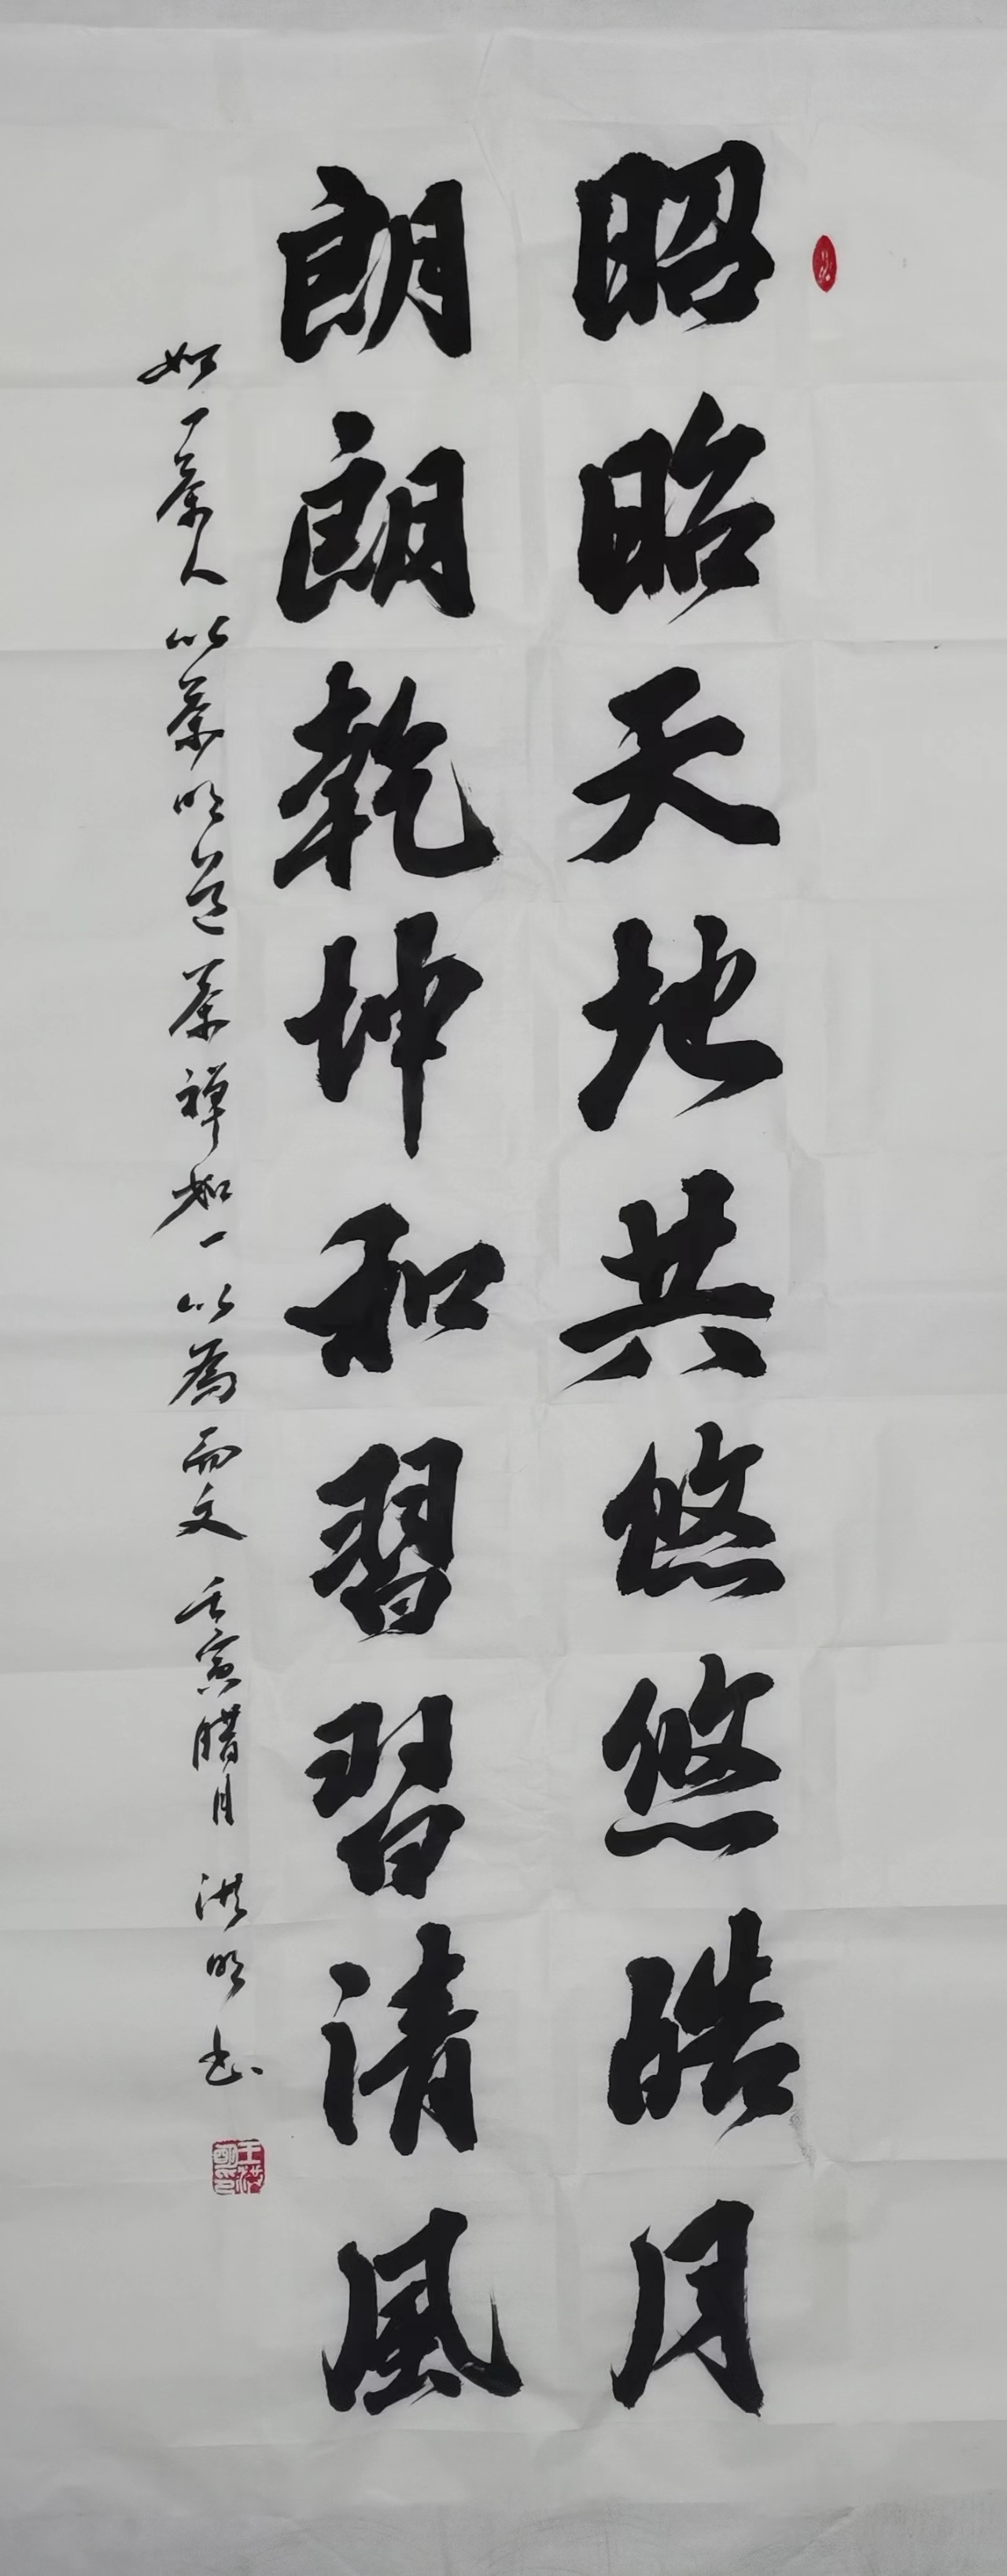 昭昭天地共悠悠皓月
朗朗乾坤和習習清風
如一茶人以茶明道茶禪如一以為而文 壬寅腊月 洪明书
王洪明印